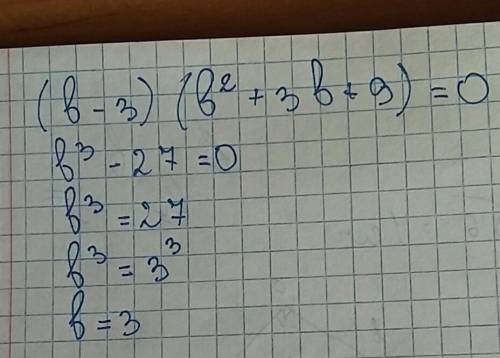 (b - 3) (b² + 3b + 9) = 0
b³ - 27 = 0
b³ = 27
b³ = 3³
b = 3